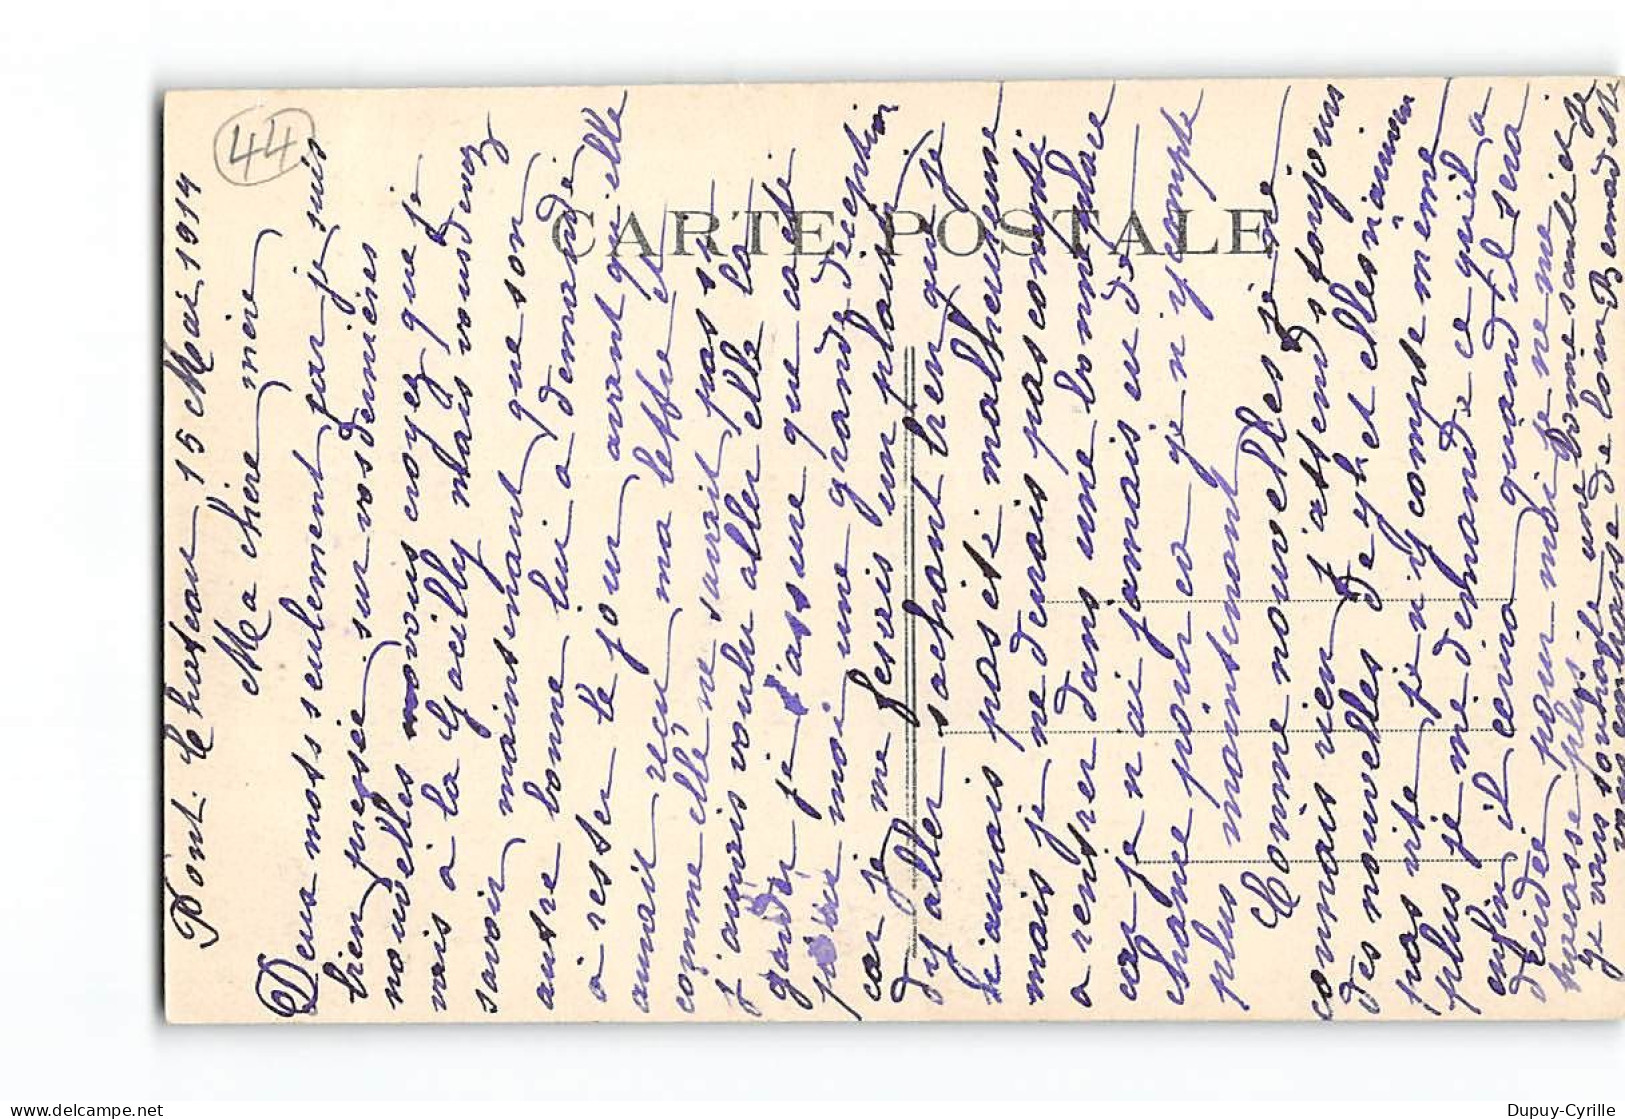 44
CARTE POSTALE
Pont. Chateau 15 Mai 1914
Ma chère mère
Deux mots seulement car je suis
bien pressée sur vos dernières
nouvelles vous croyez que je
vais à la Gacilly mais vous devez
savoir maintenant que son
autre bonne lui a demandé
à rester le jour avant qu'elle
aurait reçu ma lettre et
comme elle ne savait pas si
j'aurais voulu aller elle la
gardé je t'assure que cela
pour moi une grande déception
car je me fesais un plaisir
d'y aller sachant bien que je
n'aurais pas été malheureuse
mais je ne devrais pas compté
a rentrer dans une bonne place
car je n'ai jamais eu de
chance pour ca je n'y compte
plus maintenant
Comme nouvelles je ne
connais rien j'attends toujours
des nouvelles de yh et elles n'arrivent
pas vite je n'y compte même
plus je me demande ce qu'il a
enfin il sera quand il sera
décidé pour moi je ne me
tracasse plus
Je vous souhaite une bonne santé et je
vous embrasse de loin Bernadette
Dupuy-Cyrille